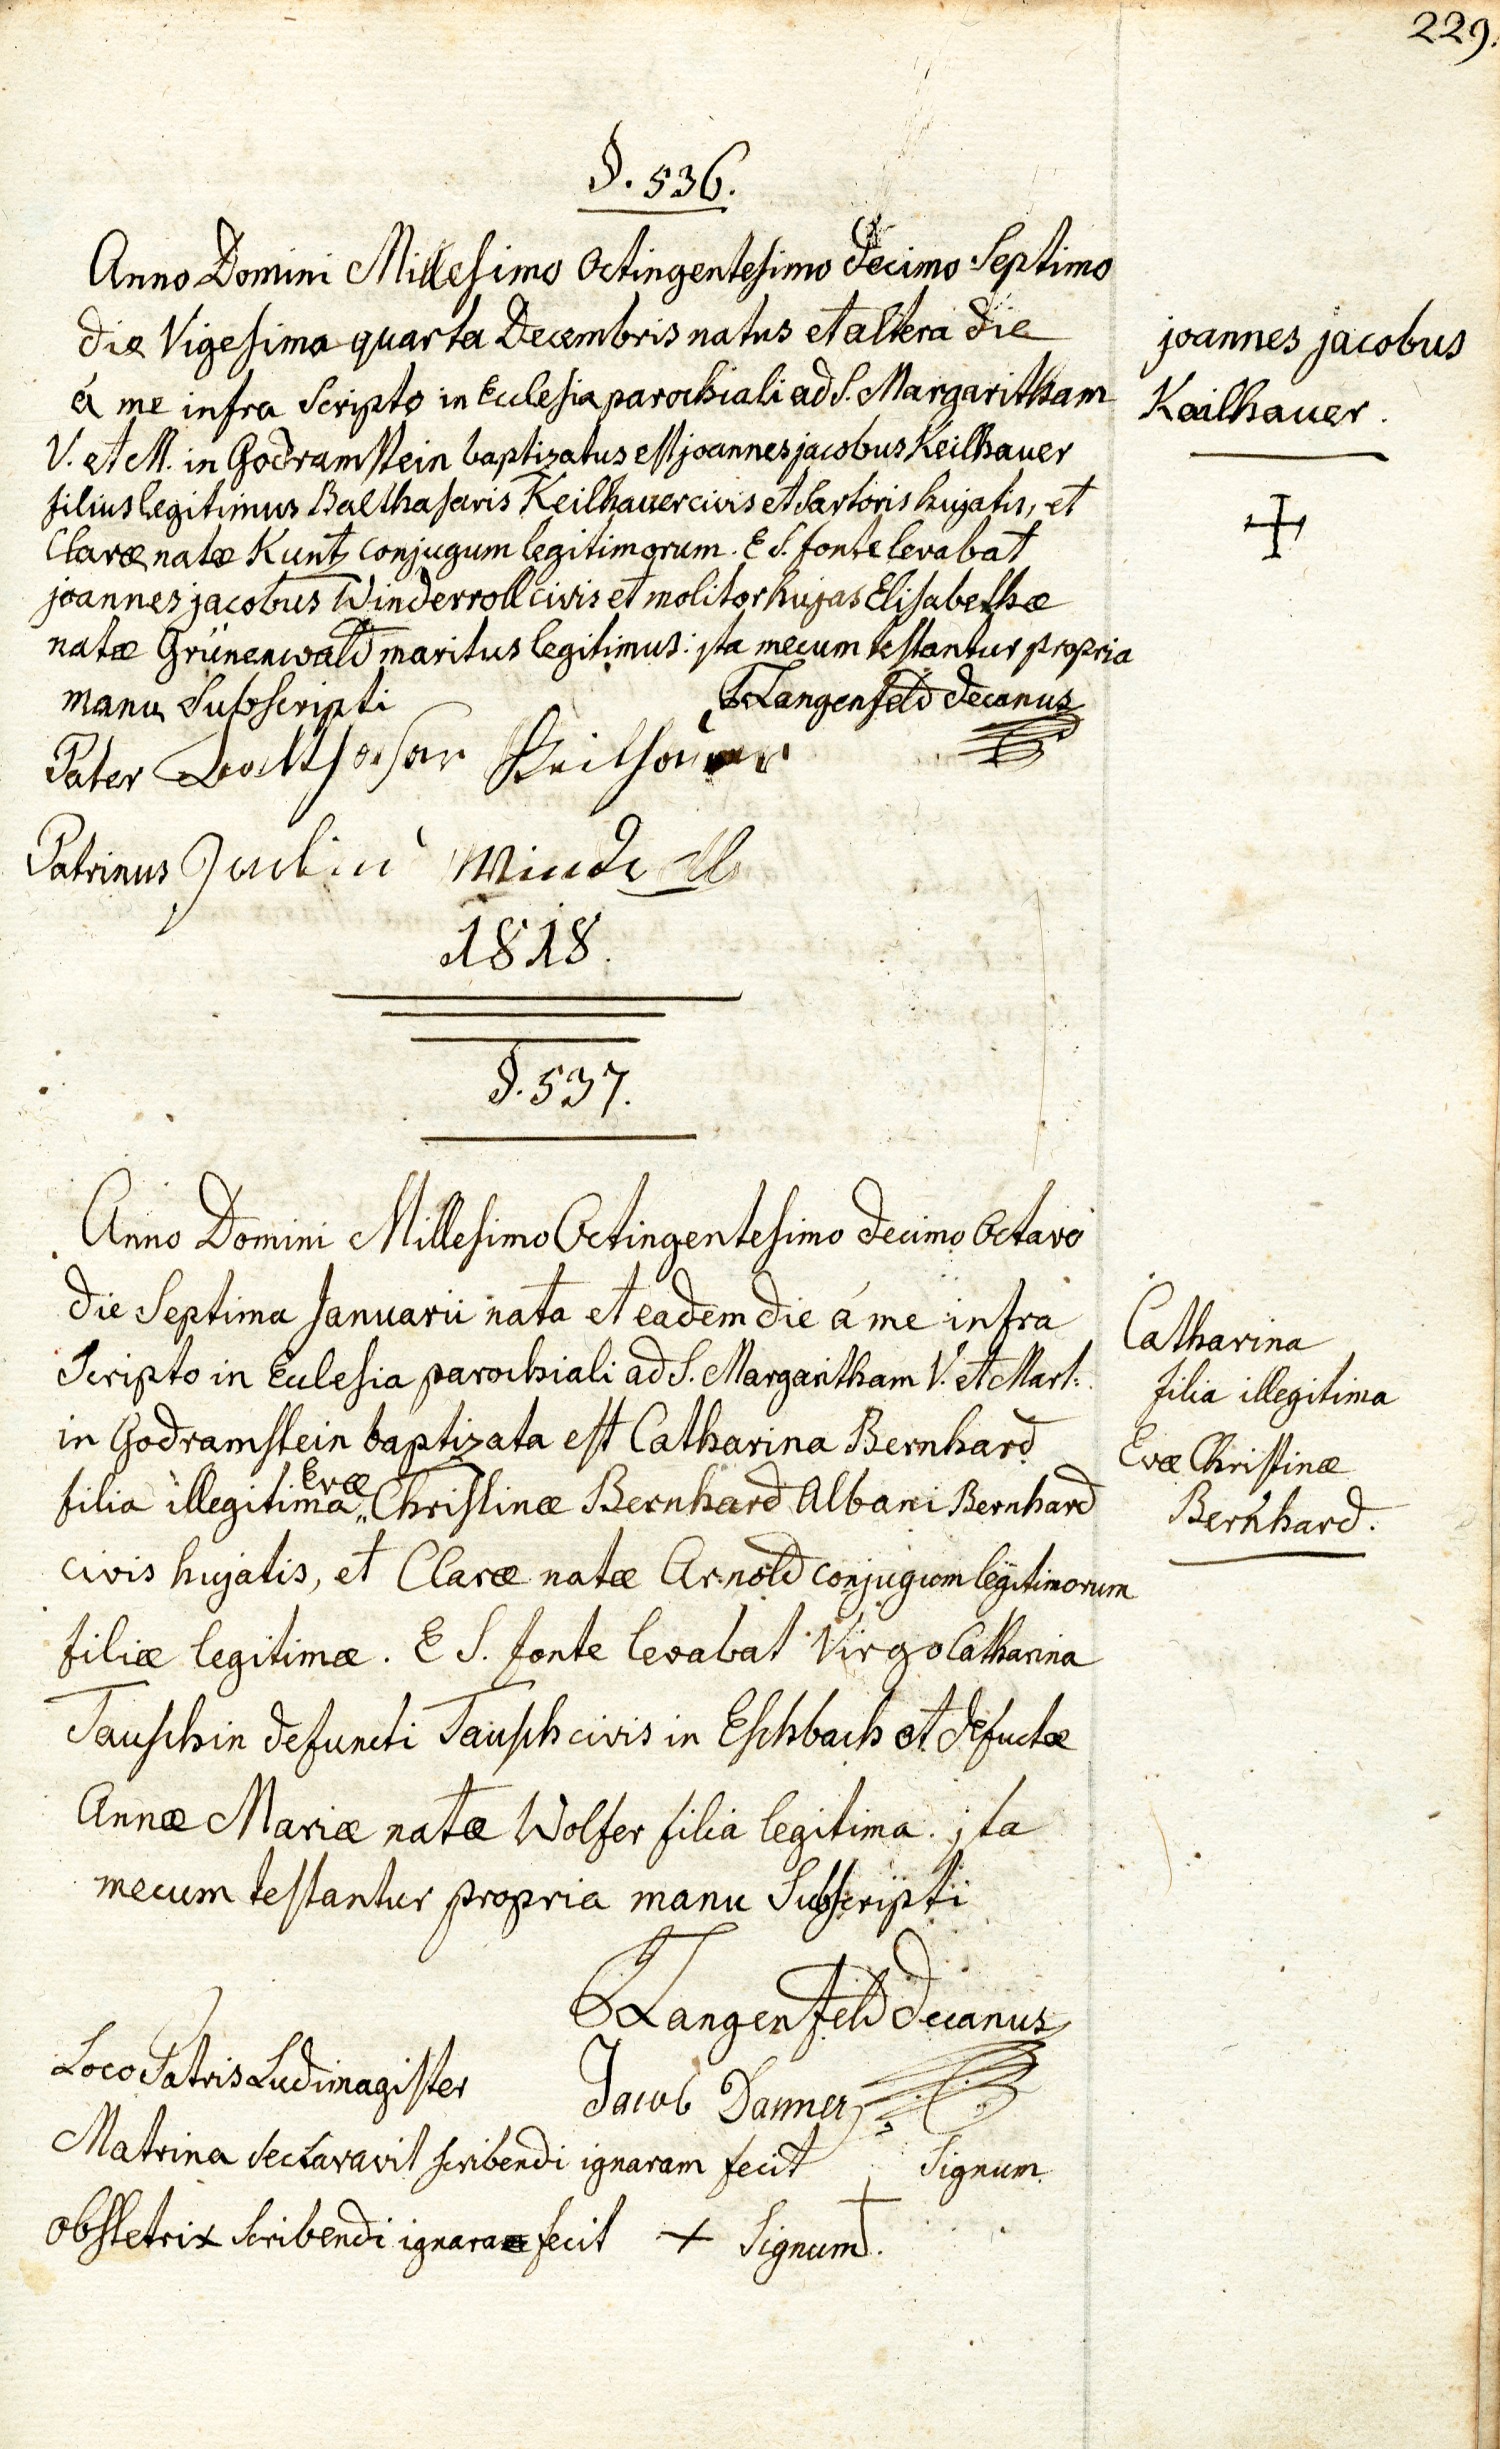 229.
§. 536.
Anno Domini Millesimo Octingentesimo decimo Septimo
die Vigesima quarta Decembris natus et altera die
á me infra Scripto in Ecclesia parochiali ad S. Margaritham
V. et M. in Godramstein baptizatus est joannes jacobus Keilhauer
filius legitimus Balthasaris Keilhauer civis et Sartoris hujatis, et
Claræ natæ Kuntz conjugum legitimorum. E S. fonte levabat
joannes jacobus Winderroll civis et molitor hujas Elisabethæ
natæ Grünenwald maritus legitimus: jta mecum testantur propria
manu Subscripti
Langenfeld decanus
Pater Balthasar Keilhauer
Patrinus
joannes jacobus
Keilhauer.
1818.
§. 537.
Anno Domini Millesimo Octingentesimo decimo Octavo
die Septima Januarii nata et eadem die á me infra
Scripto in Ecclesia parochiali ad S. Margaritham V. et Mart:
in Godramstein baptizata est Catharina Bernhard
filia illegitima Evæ Christinæ Bernhard Albani Bernhard
civis hujatis, et Claræ natæ Arnold conjugum legitimorum
filiæ legitimæ. E S. fonte levabat Virgo Catharina
Tauschin defuncti Tausch civis in Eschbach et defuctæ
Annæ Mariæ natæ Wolfer filia legitima. jta
mecum testantur propria manu Subscripti
Langenfeld decanus
Loco Patris Ludimagister Jacob Danner
Matrina declaravit scribendi ignaram fecit + Signum
obstetrix scribendi ignara fecit + Signum.
Catharina
filia illegitima
Evæ Christinæ
Bernhard.